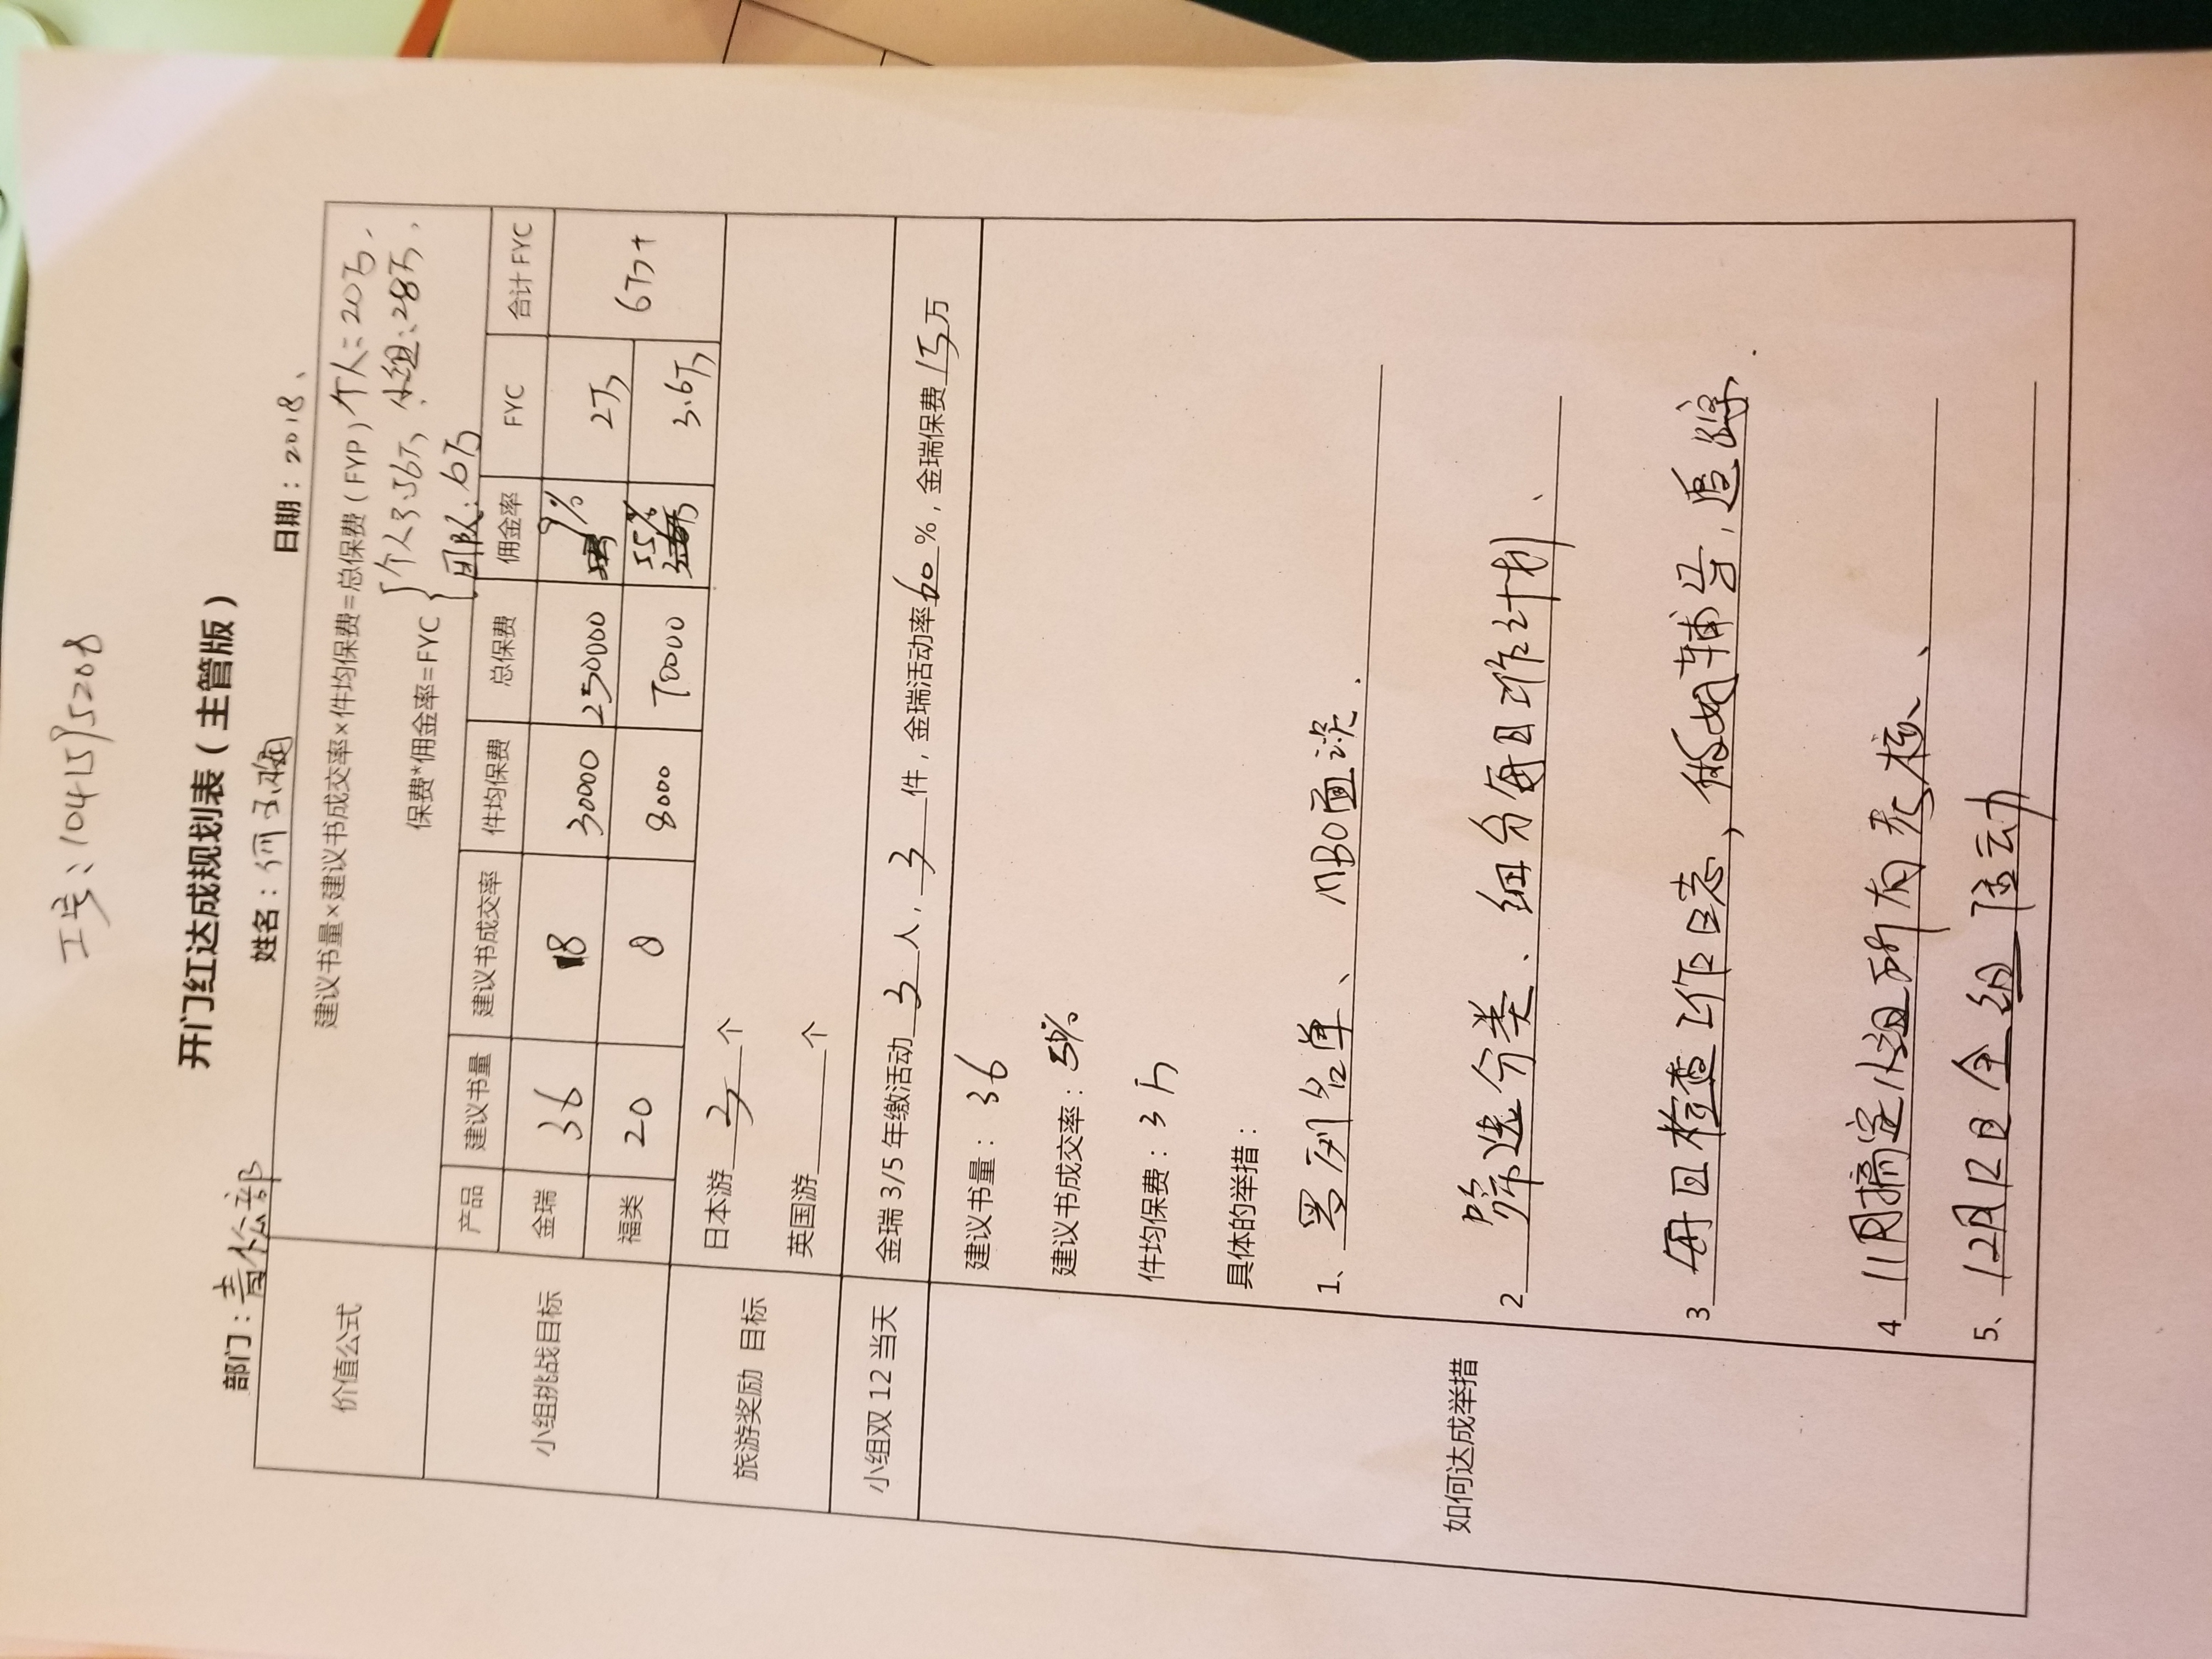 工号：1041595208
开门红达成规划表（主管版）
部门： 姓名：何 日期：2018、
价值公式 建议书量×建议书成交率×件均保费=总保费（FYP）个人：20万，
小组：28万，
保费*佣金率=FYC 个人3.56万
团队：6万
小组挑战目标 产品 建议书量 建议书成交率 件均保费 总保费 佣金率 FYC 合计 FYC
金瑞 36 18 30000 250000 9% 2万 6万+
福类 20 8 8000 70000 55% 3.6万
旅游奖励 目标 日本游 个
英国游 个
小组双 12 当天 金瑞 3/5 年缴活动 3 人，3 件，金瑞活动率 60 %，金瑞保费 15 万
如何达成举措
建议书量：36
建议书成交率：
件均保费：3万
具体的举措：
1、罗列名单、MBO面谈．
2 筛选分类、细分每日工作计划、
3 每日检查工作日志，做好辅导，追踪．
4 11月搞定小组所有考核、
5、12月12日全组活动